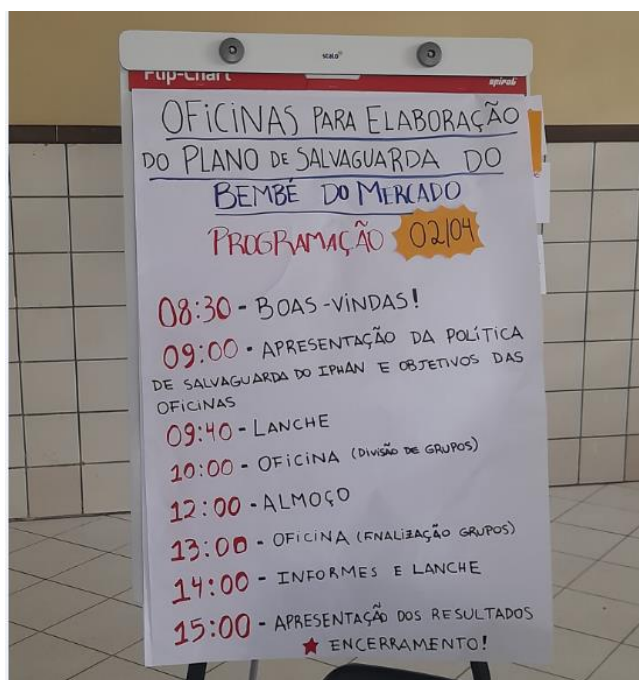 scalo
Flip-Chart
spiral
OFICINAS PARA ELABORAÇÃO
DO PLANO DE SALVAGUARDA DO
BEMBÉ DO MERCADO
PROGRAMAÇÃO 02/04
08:30 - BOAS-VINDAS!
09:00 - APRESENTAÇÃO DA POLÍTICA
DE SALVAGUARDA DO IPHAN E OBJETIVOS DAS
OFICINAS
09:40 - LANCHE
10:00 - OFICINA (DIVISÃO DE GRUPOS)
12:00 - ALMOÇO
13:00 - OFICINA (FNALIZAÇÃO GRUPOS)
14:00 - INFORMES E LANCHE
15:00 - APRESENTAÇÃO DOS RESULTADOS
★ ENCERRAMENTO!